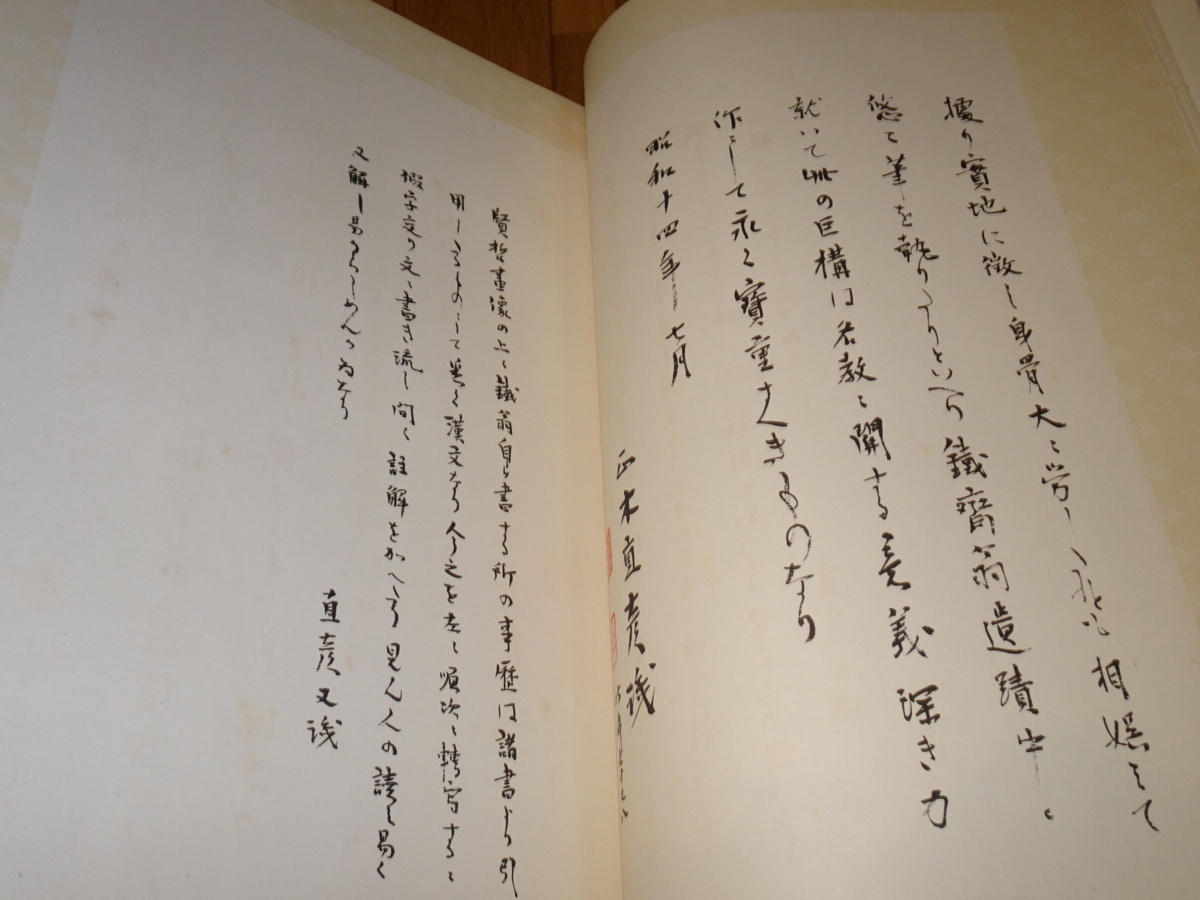 據り實地に徴し身骨大に労し 相娯みて
悠々筆を執りたりといへり鐵齋翁遺蹟中に
就いて此の巨構は名教に関する意義深き力
作にして永く寶重すへきものなり
昭和十四年七月
正木直彦識
賢哲畫像の上に鐵翁自ら書する所の事歴は諸書より引
用したるものにして悉く漢文なり今之を左に順次に轉写するに
假字交り文に書き流し間々註解をかへたり見ん人の讀み易く
又解し易からしめんか為なり
直彦又識